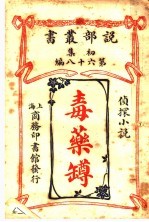 說部叢書
初集
第六十八編
偵探小説
毒藥罇
上海
商務印書館發行